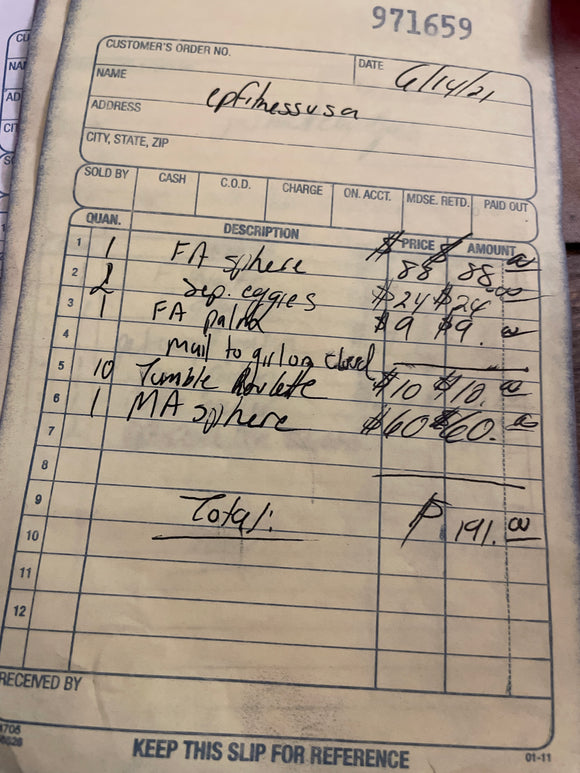 971659
CUSTOMER'S ORDER NO. DATE 6/14/21
NAME epfitnessusa
ADDRESS
CITY, STATE, ZIP
SOLD BY CASH C.O.D. CHARGE ON. ACCT. MDSE. RETD. PAID OUT
QUAN. DESCRIPTION PRICE AMOUNT
1 1 FA sphere $88 $88.00
2 2 Sep. eggies $24 $24.00
3 1 FA palm $9 $9.00
4 mail to girl on cloud
5 10 Tumble Roulette $10 $10.00
6 1 MA sphere $60 $60.00
7
8
9 Total: $191.00
10
11
12
RECEIVED BY
KEEP THIS SLIP FOR REFERENCE
01-11